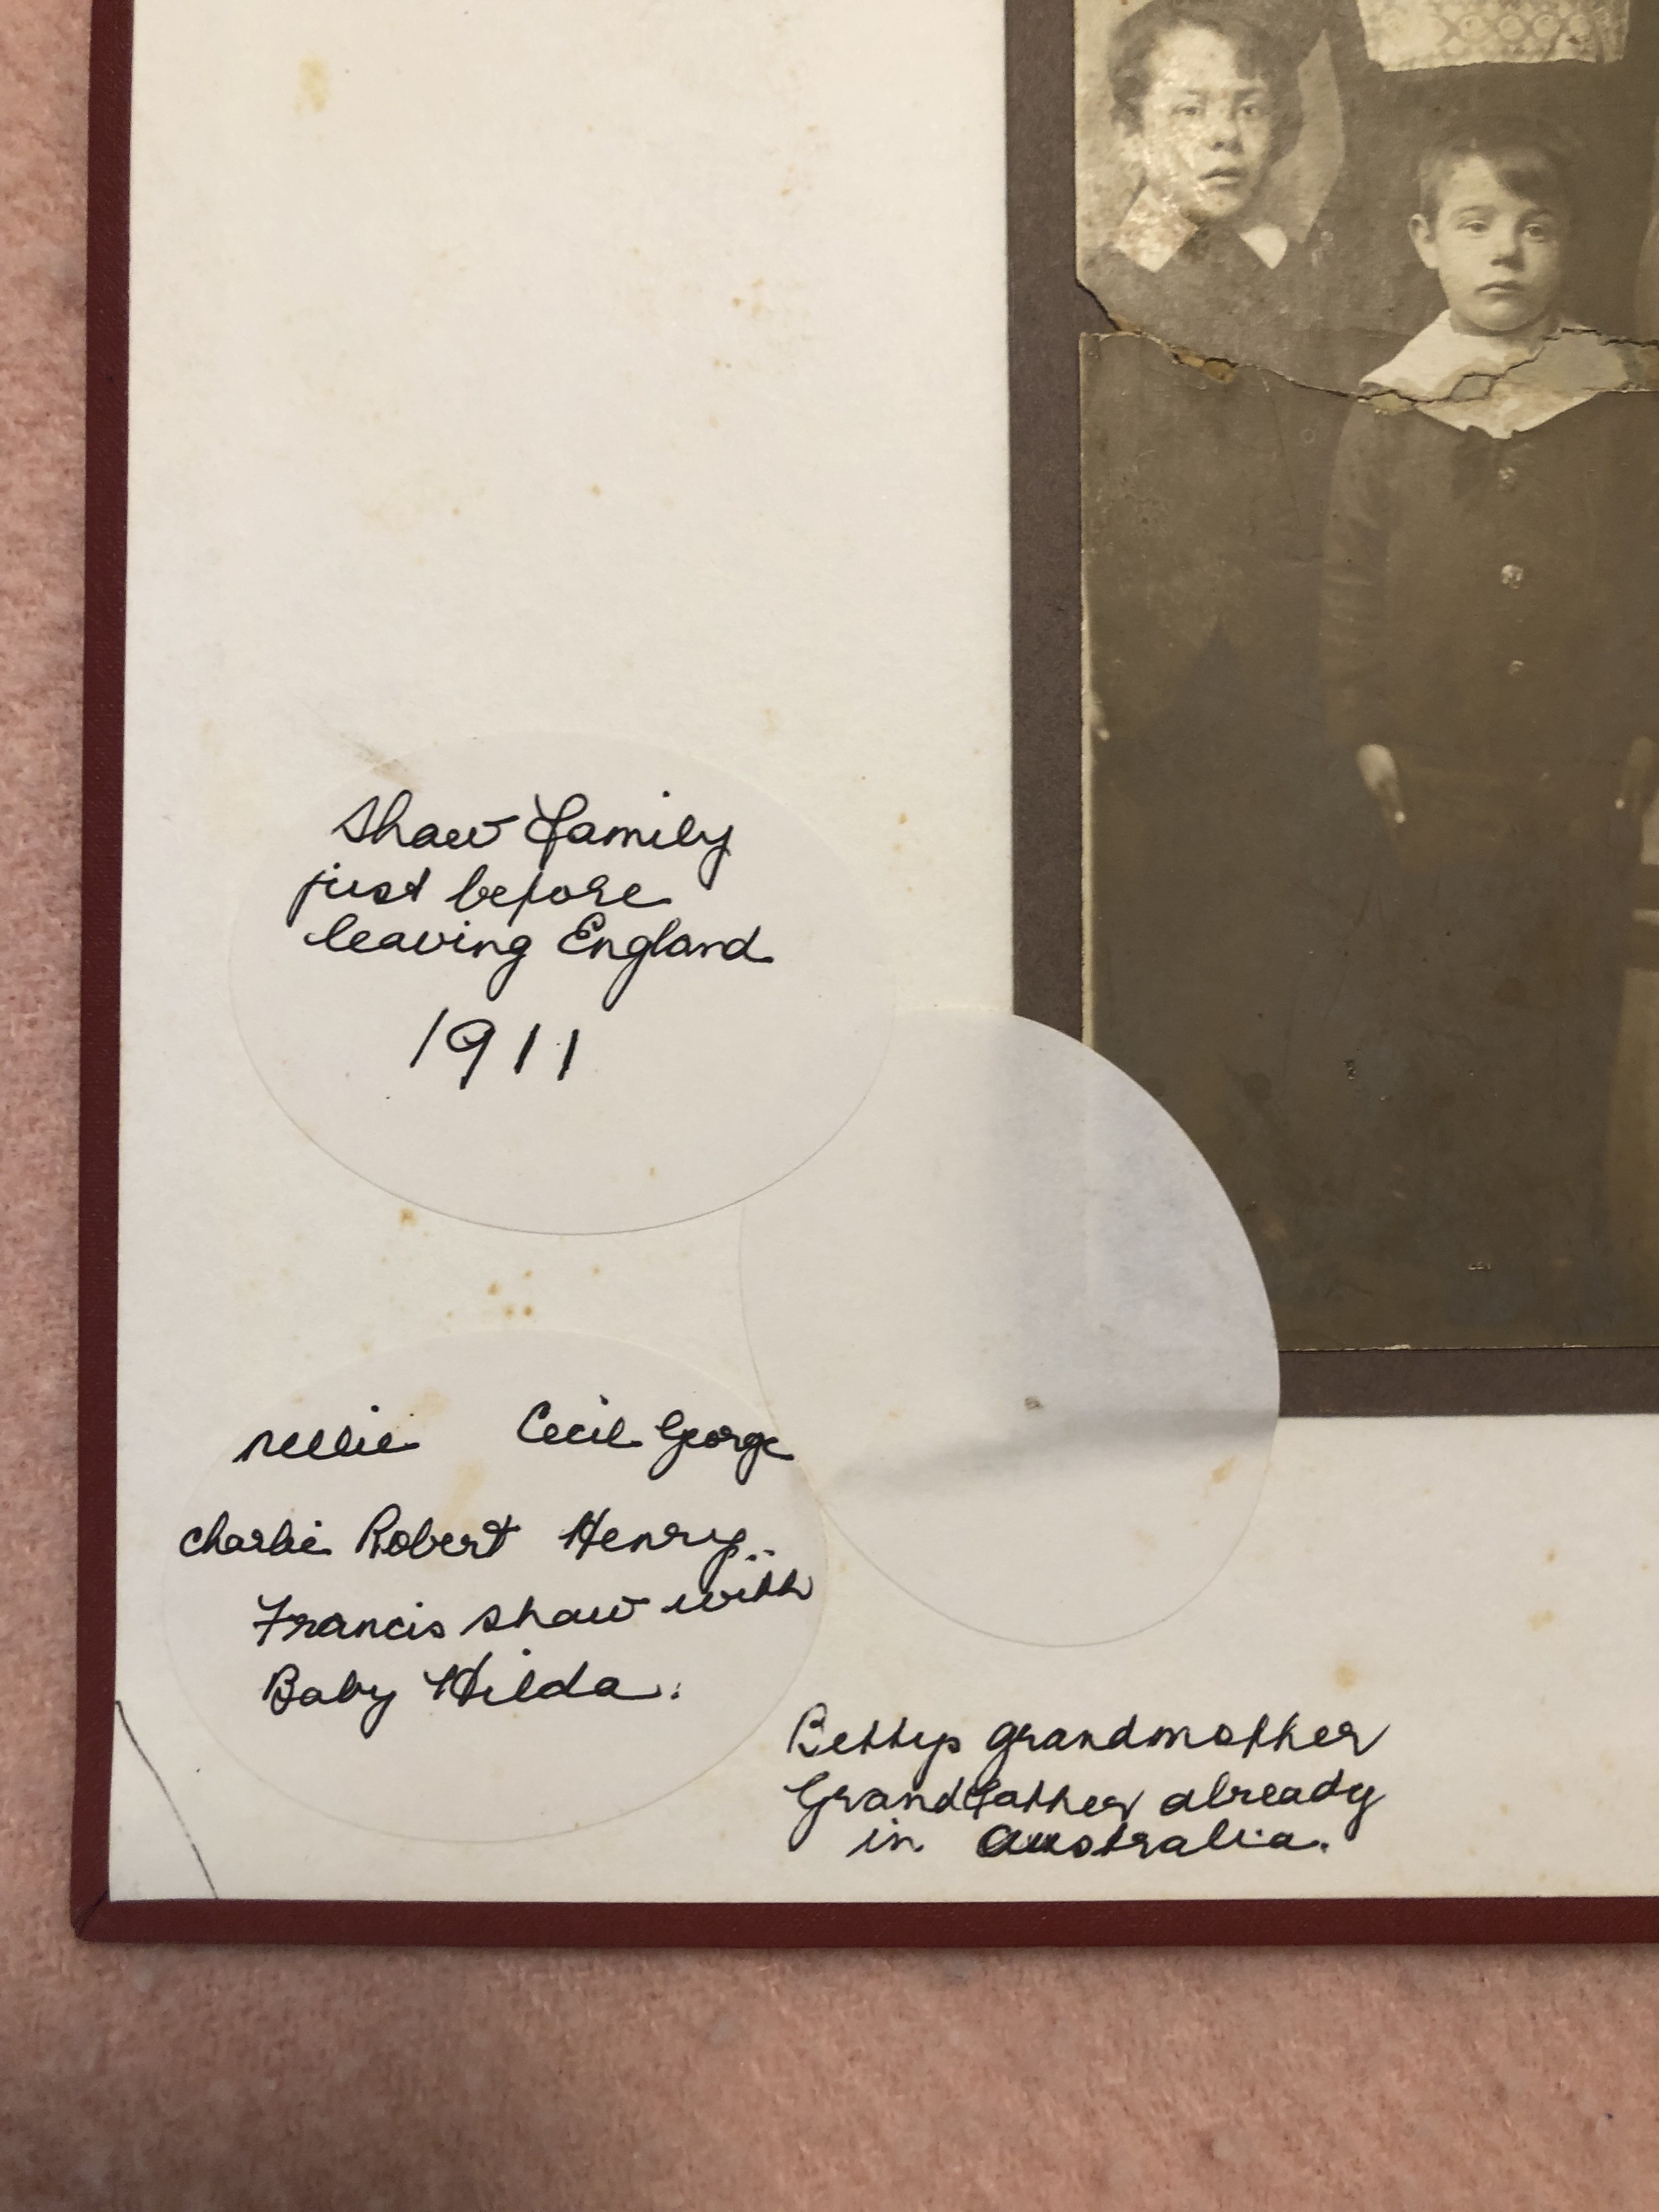 Shaw Family
just before
leaving England
1911
Nellie Cecil George
Charlie Robert Henry..
Francis Shaw with
Baby Hilda.
Bettys grandmother
Grandfather already
in Australia.